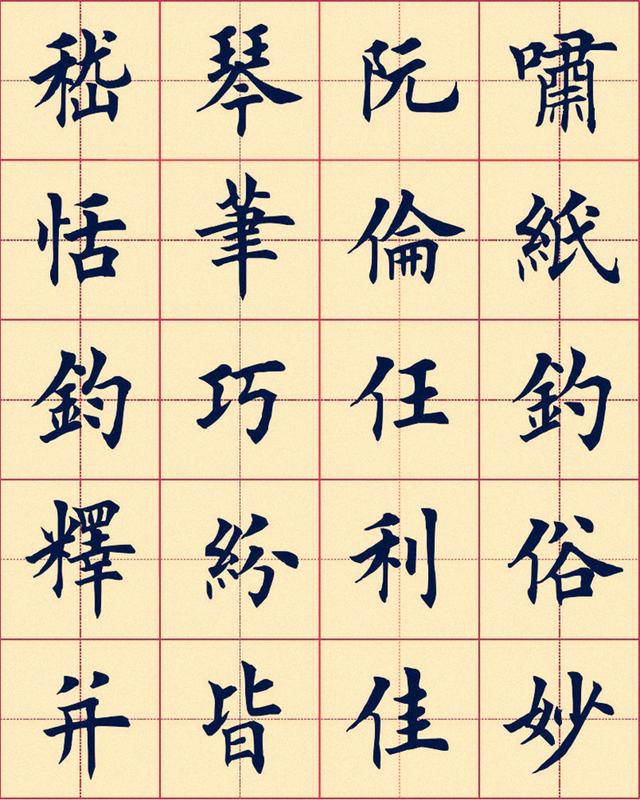 嵇琴阮嘯
恬筆倫紙
鈞巧任釣
釋紛利俗
并皆佳妙